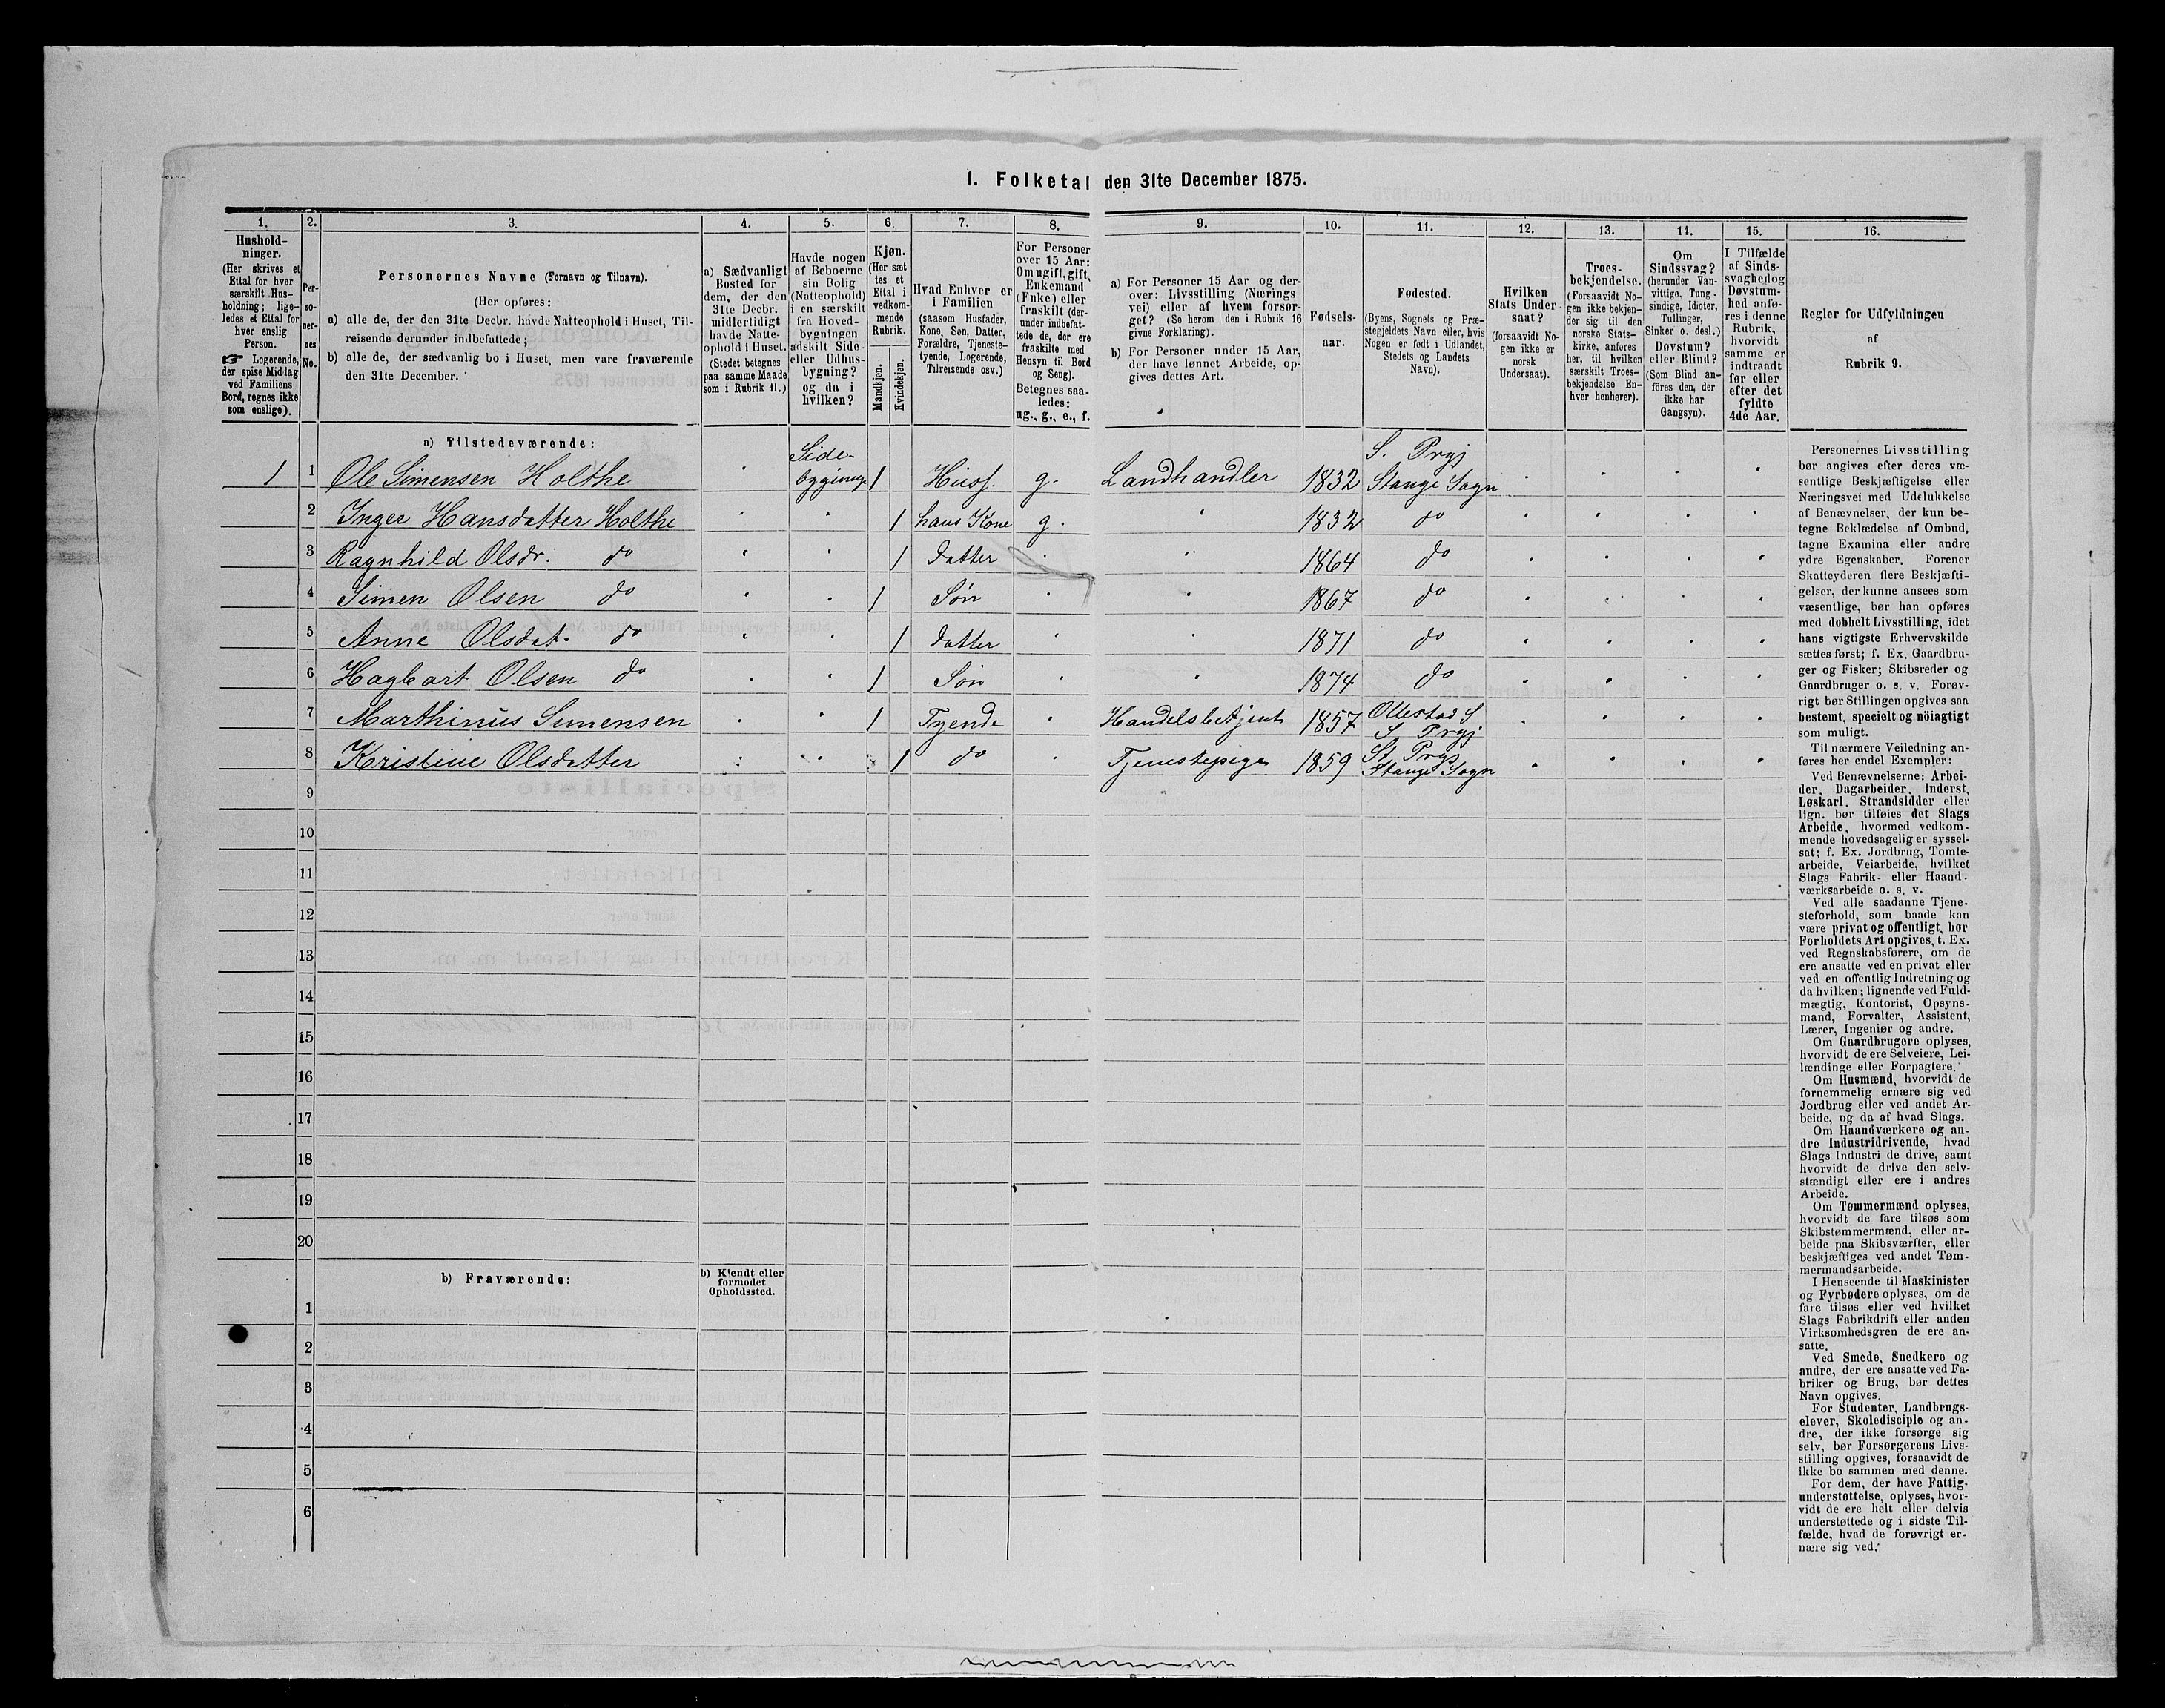 I. Folketal den 31te December 1875.
1. 2. 3. 4. 5. 6. 7. 8. 9. 10. 11. 12. 13. 14. 15. 16.
Hushold-
ninger.
(Her skrives et
Ettal for hver
særskilt Hus-
holdning; lige-
ledes et Ettal for
hver enslig
Person.
☞ Logerende,
der spise Middag
ved Familiens
Bord, regnes ikke
som enslige).
Per-
so-
ner-
nes
No.
Personernes Navne (Fornavn og Tilnavn).
(Her opføres:
a) alle de, der den 31te Decbr. havde Natteophold i Huset, Til-
reisende derunder indbefattede;
b) alle de, der sædvanlig bo i Huset, men vare fraværende
den 31te December.
a) Sædvanligt
Bosted for
dem, der den
31te Decbr.
midlertidigt
havde Natte-
ophold i Huset.
(Stedet betegnes
paa samme Maade
som i Rubrik 11.)
Havde nogen
af Beboerne
sin Bolig
(Natteophold)
i en særskilt
fra Hoved-
bygningen
adskilt Side-
eller Udhus-
bygning?
og da i
hvilken?
Kjøn.
(Her sæt
tes et
Ettal i
vedkom-
mende
Rubrik.
Mandkjøn.
Kvindekjøn.
Hvad Enhver er
i Familien
(saasom Husfader,
Kone, Søn, Datter,
Forældre, Tjeneste-
tyende, Logerende,
Tilreisende osv.)
For Personer
over 15 Aar:
Om ugift, gift,
Enkemand
(Enke) eller
fraskilt (der-
under indbefat-
tede de, der ere
fraskilte med
Hensyn til Bord
og Seng).
Betegnes saa-
ledes:
ug., g., e., f.
a) For Personer 15 Aar og der-
over: Livsstilling (Nærings
vei) eller af hvem forsør-
get? (Se herom den i Rubrik 16
givne Forklaring).
b) For Personer under 15 Aar,
der have lønnet Arbeide, op-
gives dettes Art.
Fødsels-
aar.
Fødested.
(Byens, Sognets og Præ-
stegjeldets Navn eller, hvis
Nogen er født i Udlandet,
Stedets og Landets
Navn).
Hvilken
Stats Under-
saat?
(forsaavidt No-
gen ikke er
norsk
Undersaat).
Troes-
bekjendelse.
(Forsaavidt No-
gen ikke bekjen-
der sig til den
norske Stats-
kirke, anføres
her, til hvilken
særskilt Troes-
bekjendelse En-
hver henhører).
Om
Sindssvag?
(herunder Van-
vittige, Tung-
sindige, Idioter,
Tullinger,
Sinker o. desl.)
Døvstum?
eller Blind?
(Som Blind an-
föres den, der
ikke har
Gangsyn).
I Tilfælde
af Sinds-
svaghed og
Døvstum-
hed anfø-
res i denne
Rubrik,
hvorvidt
samme er
indtraadt
før eller
efter det
fyldte
4de Aar.
Regler for Udfyldningen
af
Rubrik 9.
a) Tilstedeværende:
1 1 Ole Simensen Holthe Side-bygning 1 Husf. g. Landhandler 1832 S. Prgj Stange Sogn
2 Inger Hansdatter Holthe 1 hans Kone g. 1832 do
3 Ragnhild Olsdr. do 1 Datter 1864 do
4 Simen Olsen do 1 Søn 1867 do
5 Anne Olsdat. do 1 Datter 1871 do
6 Hagbart Olsen do 1 Søn 1874 do
7 Marthinus Simensen 1 Tyende Handelsbetjent 1857 Ottestad S S Prgj
8 Kristine Olsdatter 1 do Tjenestepige 1859 St. Prgj Stange Sogn
9
10
11
12
13
14
15
16
17
18
19
20
b) Fraværende:
b) Kjendt eller
formodet
Opholdssted.
1
2
3
4
5
6
Personernes Livsstilling
bør angives efter deres væ-
sentlige Beskjæftigelse eller
Næringsvei med Udelukkelse
af Benævnelser, der kun be-
tegne Beklædelse af Ombud,
tagne Examina eller andre
ydre Egenskaber. Forener
Skatteyderen flere Beskjæfti-
gelser, der kunne ansees som
væsentlige, bør han opføres
med dobbelt Livsstilling, idet
hans vigtigste Erhvervskilde
sættes først; f. Ex. Gaardbru-
ger og Fisker; Skibsreder og
Gaardbruger o. s. v. Forøv-
rigt bør Stillingen opgives saa
bestemt, specielt og nöiagtigt
som muligt.
Til nærmere Veiledning an-
føres her endel Exempler:
Ved Benævnelserne: Arbei-
der, Dagarbeider, Inderst,
Løskarl, Strandsidder eller
lign. bør tilføies det Slags
Arbeide, hvormed vedkom-
mende hovedsagelig er syssel-
sat; f. Ex. Jordbrug, Tomte-
arbeide, Veiarbeide, hvilket
Slags Fabrik- eller Haand-
værksarbeide o. s. v.
Ved alle saadanne Tjene-
steforhold, som baade kan
være privat og offentligt, bør
Forholdets Art opgives, t. Ex.
ved Regnskabsførere, om de
ere ansatte ved en privat eller
ved en offentlig Indretning og
da hvilken; lignende ved Fuld-
mægtig, Kontorist, Opsyns-
mand, Forvalter, Assistent,
Lærer, Ingeniør og andre.
Om Gaardbrugere oplyses,
hvorvidt de ere Selveiere, Lei-
lændinge eller Forpagtere.
Om Husmænd, hvorvidt de
fornemmelig ernære sig ved
Jordbrug eller ved andet Ar-
beide, og da af hvad Slags.
Om Haandværkere og an-
dre Industridrivende, hvad
Slags Industri de drive, samt
hvorvidt de drive den selv-
stændigt eller ere i andres
Arbeide.
Om Tømmermænd oplyses,
hvorvidt de fare tilsøs som
Skibstømmermænd, eller ar-
beide paa Skibsværfter, eller
beskjæftiges ved andet Tøm-
mermandsarbeide.
I Henseende til Maskinister
og Fyrbødere oplyses, om de
fare tilsøs eller ved hvilket
Slags Fabrikdrift eller anden
Virksomhedsgren de ere an-
satte.
Ved Smede, Snedkere og
andre, der ere ansatte ved Fa-
briker og Brug, bør dettes
Navn opgives.
For Studenter, Landbrugs-
elever, Skoledisciple og an-
dre, der ikke forsørge sig
selv, bør Forsørgerens Livs-
stilling opgives, forsaavidt de
ikke bo sammen med denne.
For dem, der have Fattig-
understøttelse, oplyses, hvor-
vidt de ere helt eller delvis
understøttede og i sidste Til-
fælde, hvad de forøvrigt er-
nære sig ved.